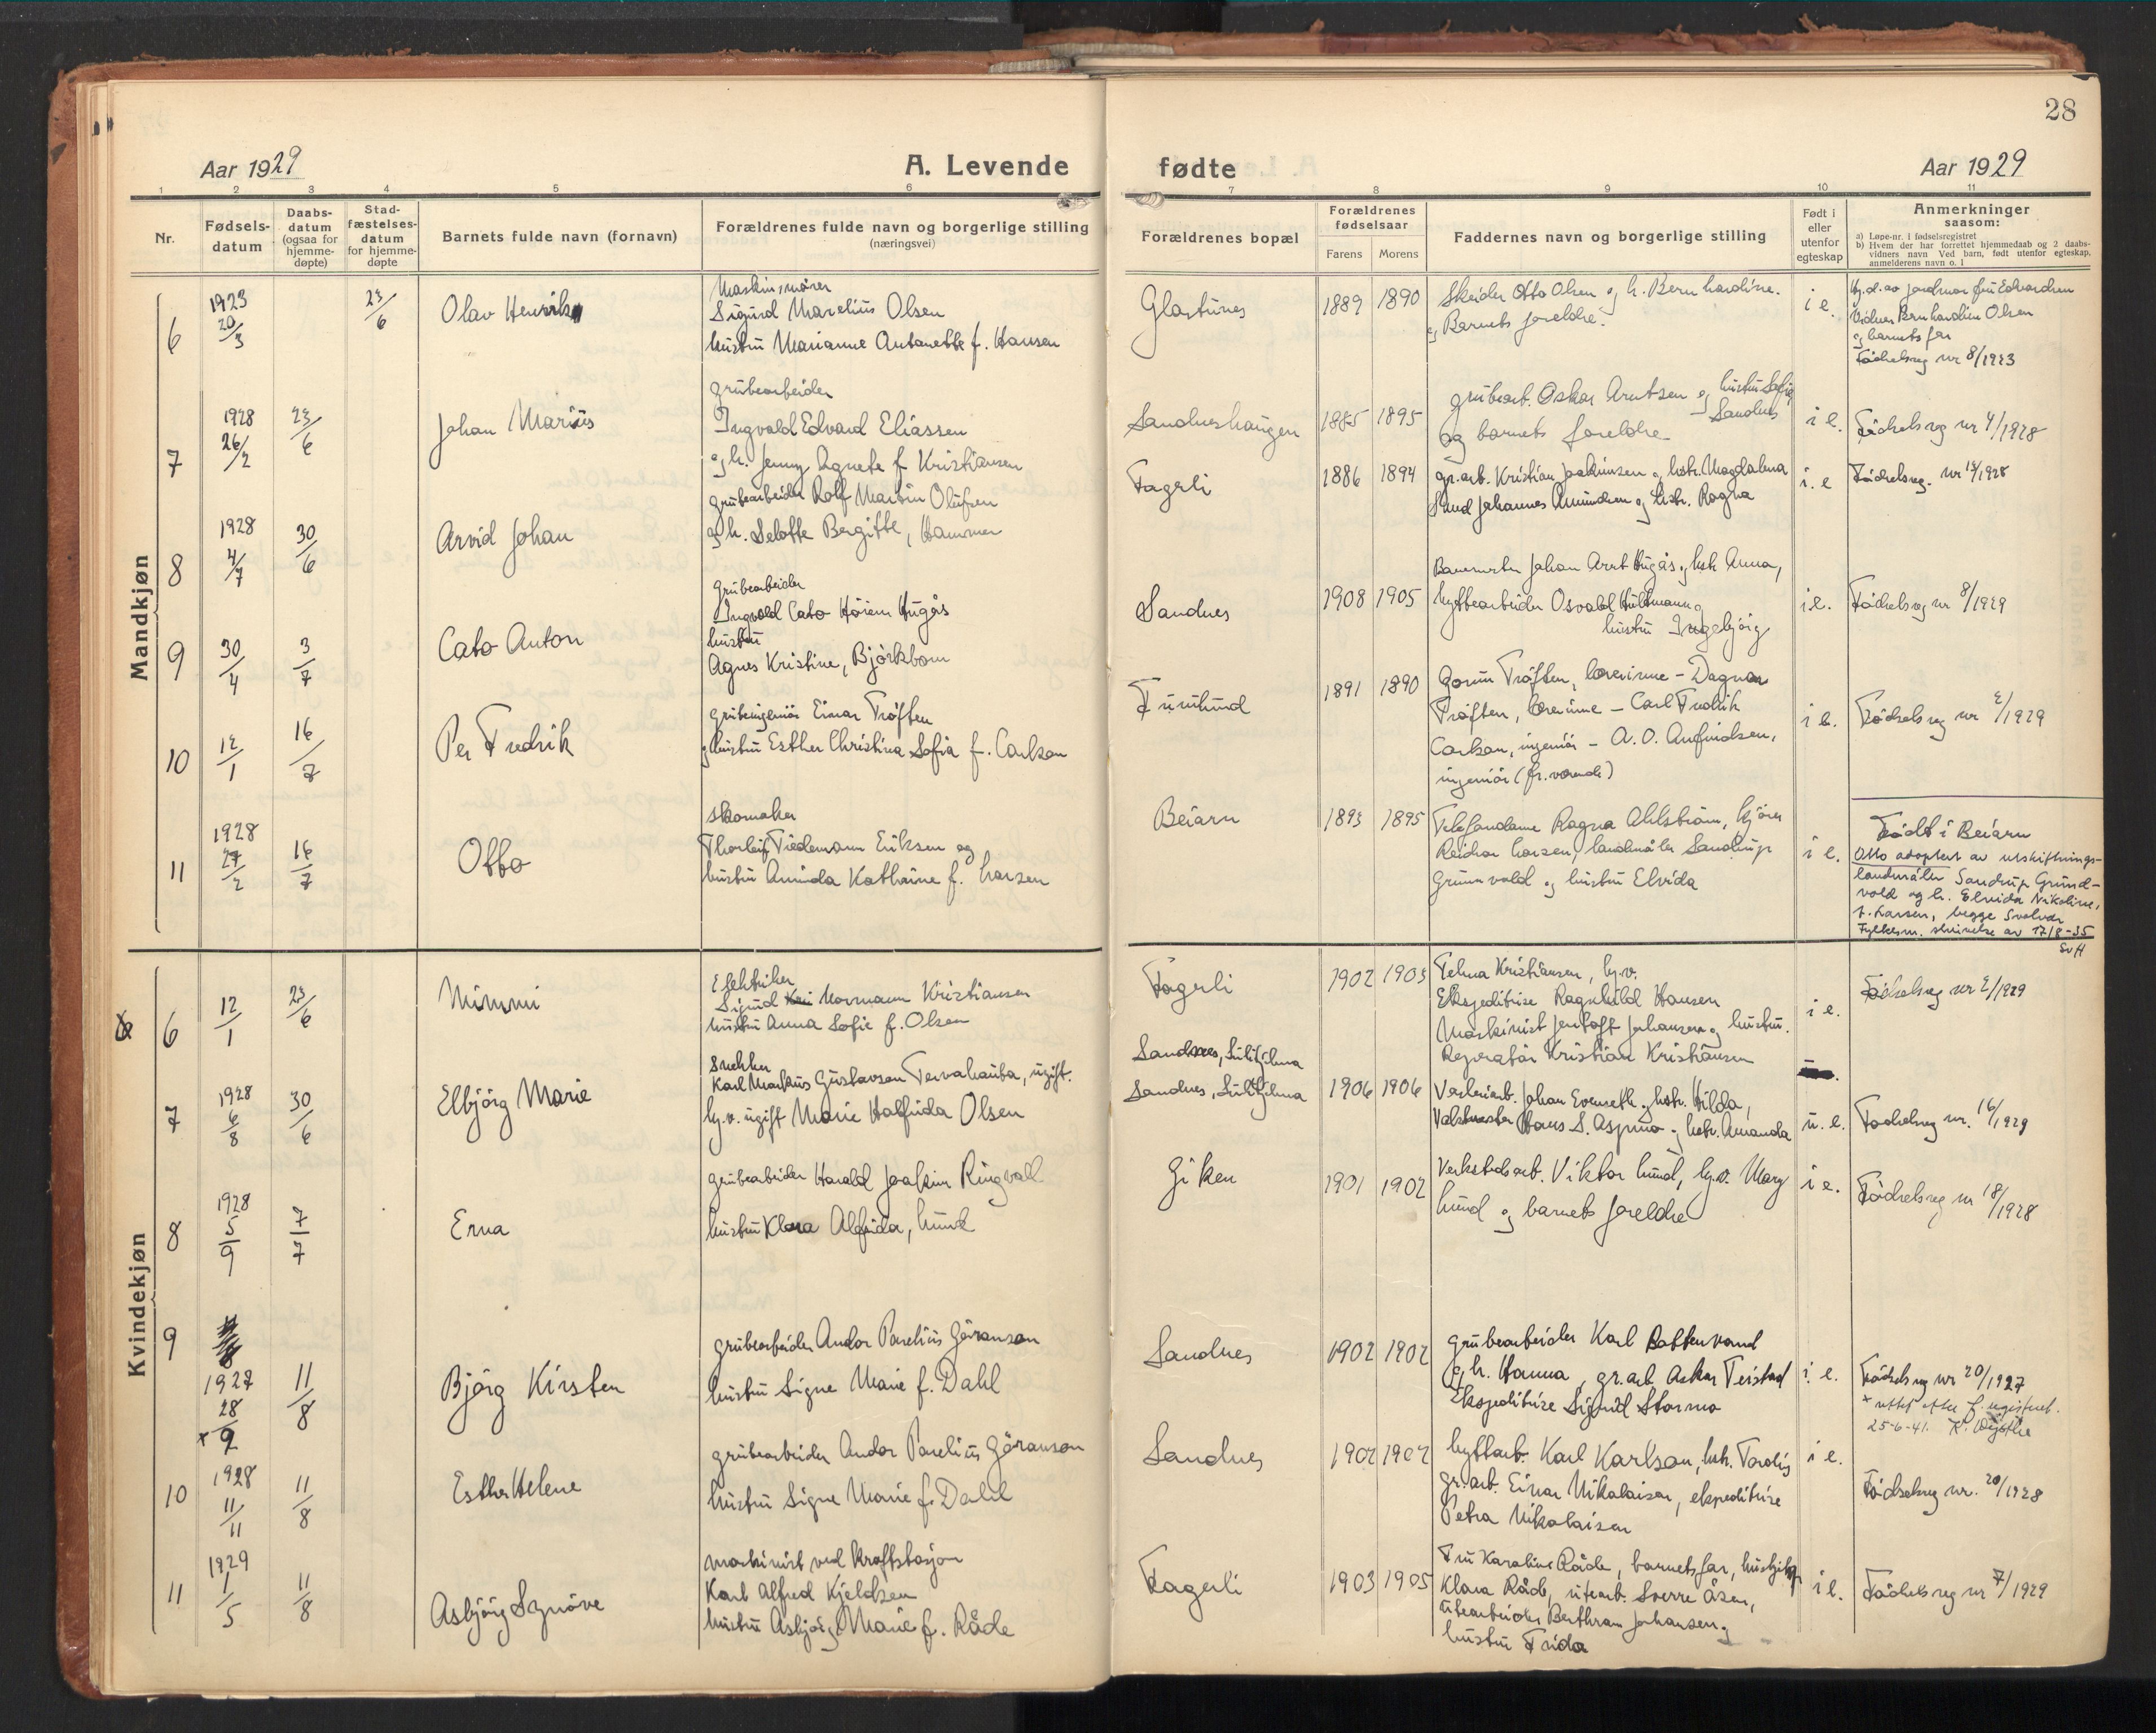 28
Aar 1929
A. Levende
fødte
Aar 1929
1 2 3 4 5 6 7 8 9 10 11
Nr.
Fødsels-
datum
Daabs-
datum
(ogsaa for
hjemme-
døpte)
Stad-
fæstelses-
datum
for hjemme-
døpte
Barnets fulde navn (fornavn)
Forældrenes fulde navn og borgerlige stilling
(næringsvei)
Forældrenes bopæl
Forældrenes
fødselsaar
Farens Morens
Faddernes navn og borgerlige stilling
Født i
eller
utenfor
egteskap
Anmerkninger
saasom:
a) Løpe-nr. i fødselsregistret
b) Hvem der har forrettet hjemmedaab og 2 daabs-
vidners navn Ved barn, født utenfor egteskap,
anmelderens navn o. l
Mandkjøn
6
1923
20/3
23/6
Olav Henrik
Sigurd Marelius Olsen
hustru Marianne Antonette f. Hansen
Glastunes
1889 1890
Skeider Otto Olsen og h. Bernhardine.
og Barnets foreldre.
i e.
Hj.d. av jordmor fru Edvardsen
Vidner Bernhardine Olsen
og barnets far
Fødselsreg nr 8/1923
7
1928
26/2
23/6
Johan Marius
grubearbeider
Ingvald Edvard Eliassen
og h. Jenny Agnete f Kristiansen
Sandneshaugen
1885 1895
grubearb. Oskar Arntsen og hustru Sofie
Sandnes
og barnets foreldre
i e.
Fødselsreg nr 4/1928
8
1928
4/7
30/6
Arvid Johan
grubearbeider Rolf Martin Olufsen
og h. Selotte Bergitte, Hammer
Fagerli
1886 1894
gr.arb. Kristian Joakimsen og hstr. Magdalena
Sund Johannes Amundsen og hstr. Ragna
i. e
Fødselsreg. nr 15/1928
9
30/4
3/7
Cato Anton
Grubearbeider
Ingvald Cato Hugås
hustru
Agnes Kristine, Björkbom
Sandnes
1908 1905
Johan Hugås og hstr Anna,
hyttearbeider Osvald Hultmann og
hustru Ingebjørg
i e.
Fødselsreg nr 8/1929
10
12/1
16/7
Per Fredrik
grubeingeniør Einar Trøften
og hustru Esther Christina Sofia f. Carlson
Furulund
1891 1890
Gorun Trøften, lærerinne - Dagmar
Trøften, lærerinne - Carl Fredrik
Carlson, ingeniør - A. O. Anfindsen,
ingeniør (fr.værende)
i e.
Fødselsreg nr 2/1929
11
1928
27/2
16/7
Otto
skomaker
Thorleif Tiedemann Eriksen og
hustru Aminda Kathrine f. Larsen
Beiarn
1893 1895
Telefondame Ragna Ahlstrøm, kjører
Reidar Larsen, landmåler Sandrup
Grunnvold og hustru Elvida
i e.
Født i Beiarn
Otto adoptert av utskiftnings-
landmåler Sandrup Grund-
vold og h. Elvida Nikoline,
f. Larsen, begge Svolvær
Fylkesm. skrivelse av 17/8-35
SvH
Kvindekjøn
6
12/1
23/6
Mimmi
Elektriker
Sigurd Normann Kristiansen
hustru Anna Sofie f. Olsen
Fagerli
1902 1903
Telma Kristiansen, hj.v.
Ekspeditrise Ragnhild Hansen
Maskinist Jentoft Johansen og hustru.
Reparatør Kristian Kristiansen
i e.
Fødselsreg nr 2/1929
7
1928
6/8
30/6
Elbjörg Marie
snekker
Karl Markus Gustavson Tervahauta, ugift.
hj.v. ugift Marie Halfrida Olsen
Sandnes, Sulitjelma
Sandnes, Sulitjelma
1906 1906
Johan Evenseth og hstr. Hilda,
Hans S. Aspmo og hstr. Amanda
u. e.
Fødselsreg nr. 16/1929
8
1928
5/9
7/7
Erna
grubearbeider Harald Joakim Ringvoll
hustru Klara Alfrida, Lund
Giken
1901 1902
Verkstedsarb. Viktor Lund, hj.v. Mary
Lund og barnets foreldre
i e.
Fødselsreg nr 18/1928
9
1927
28/9
11/8
Bjørg Kirsten
grubearbeider Andor Parelius Göranson
hustru Signe Marie f. Dahl
Sandnes
1902 1902
Grubearbeider Karl Battenvand
og h. Hanna, gr.arb. Askar Teistad
Ekspeditrise Sigrid Stormo
i. e.
Fødselsreg nr 20/1927
x rettet etter f. registeret.
25-6-41.
10
1928
11/11
11/8
Esther Helene
grubearbeider Andor Parelius Göranson
hustru Signe Marie f. Dahl
Sandnes
1902 1902
hyttarb. Karl Karlson, hstr. Tordis
gr.arb. Einar Nikolaisen, ekspeditrise
Petra Nikolaisen
i e.
Fødselsreg nr. 20/1928
11
1929
1/5
11/8
Asbjørg Synøve
maskinist ved kraftstasjon
Karl Alfred Kjeldsen
hustru Asbjørg Marie f. Råde
Fagerli
1903 1905
Fru Karoline Råde, barnets far,
Klara Råde, utearb. Sverre Åsen,
utearbeider Berthram Johansen og
hustru Frida
i e.
Fødselsreg nr 7/1929